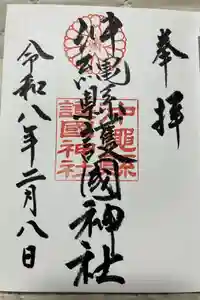 奉拝
沖縄県護國神社
令和八年二月八日
沖縄縣
護國神社